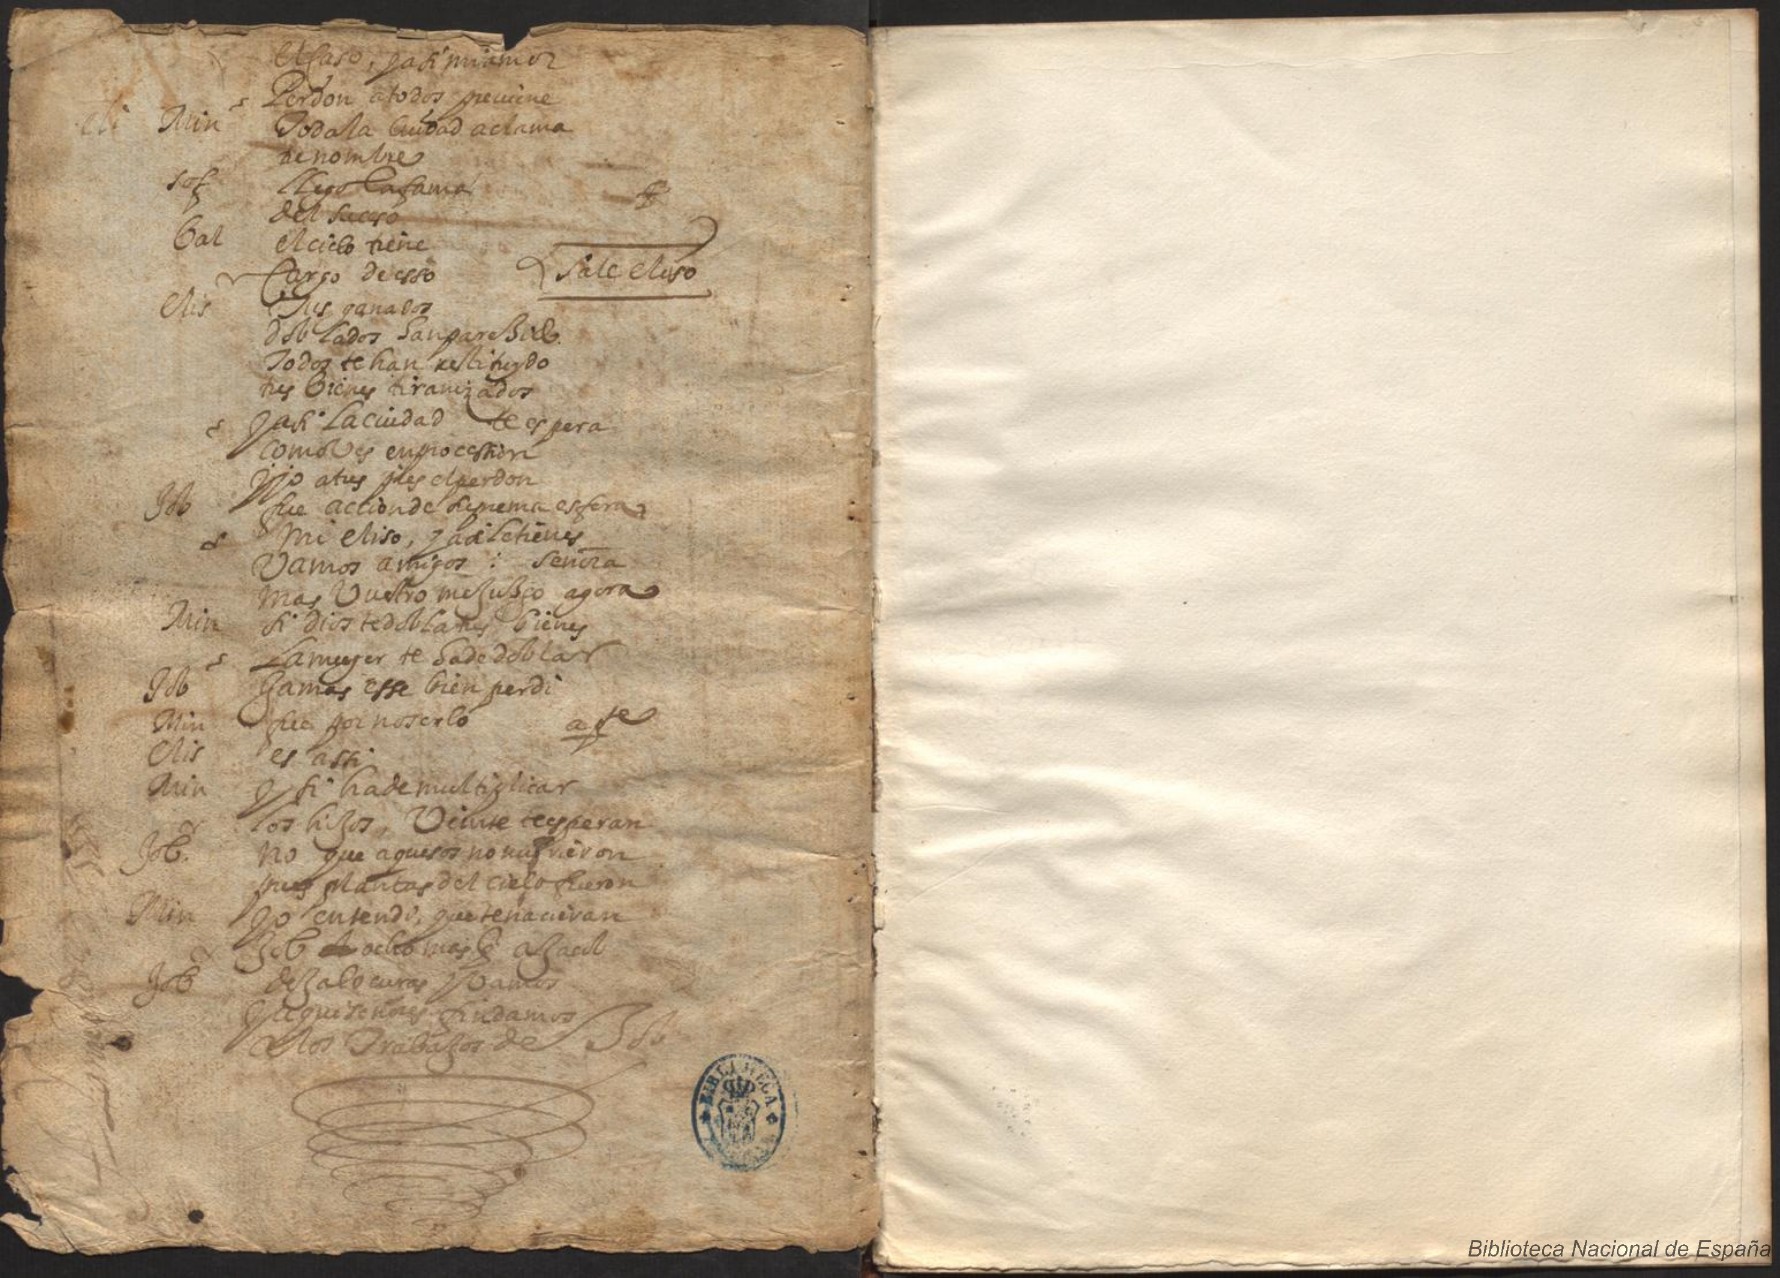 el caso, y asi mi amor
Perdon a todos previene
Min Toda la Ciudad aclama
tu nombre
Sof llego la fama
del suceso
Bal el cielo tiene
Cargo de esso
Sale eliso
Elis tus ganados
doblados han pareBido.
Todos te han restituydo
tus bienes tiranizados
y asi la ciudad te espera
como Ves en procession
yo a tus pies el perdon
Job fue accion de suprema esfera
Mi eliso, ya le tienes
Vamos amigos : señora
mas Vuestro me juzgo agora
Min si dios te dobla tus bienes
La muger te ha de doblar
Job Jamas esse bien perdi
Min fue por no serlo
Elis es assi
Min y si ha de multiplicar
los hijos, Veinte te esperan
Job. no que aquesos no murieron
pues plantas del cielo fueron
Min yo entendi, que te nacieran
Job ocho mas
Job deja locuras y Vamos
y aqui señores fin damos
A los Trabajos de Job
BIBLIOTECA
Biblioteca Nacional de España